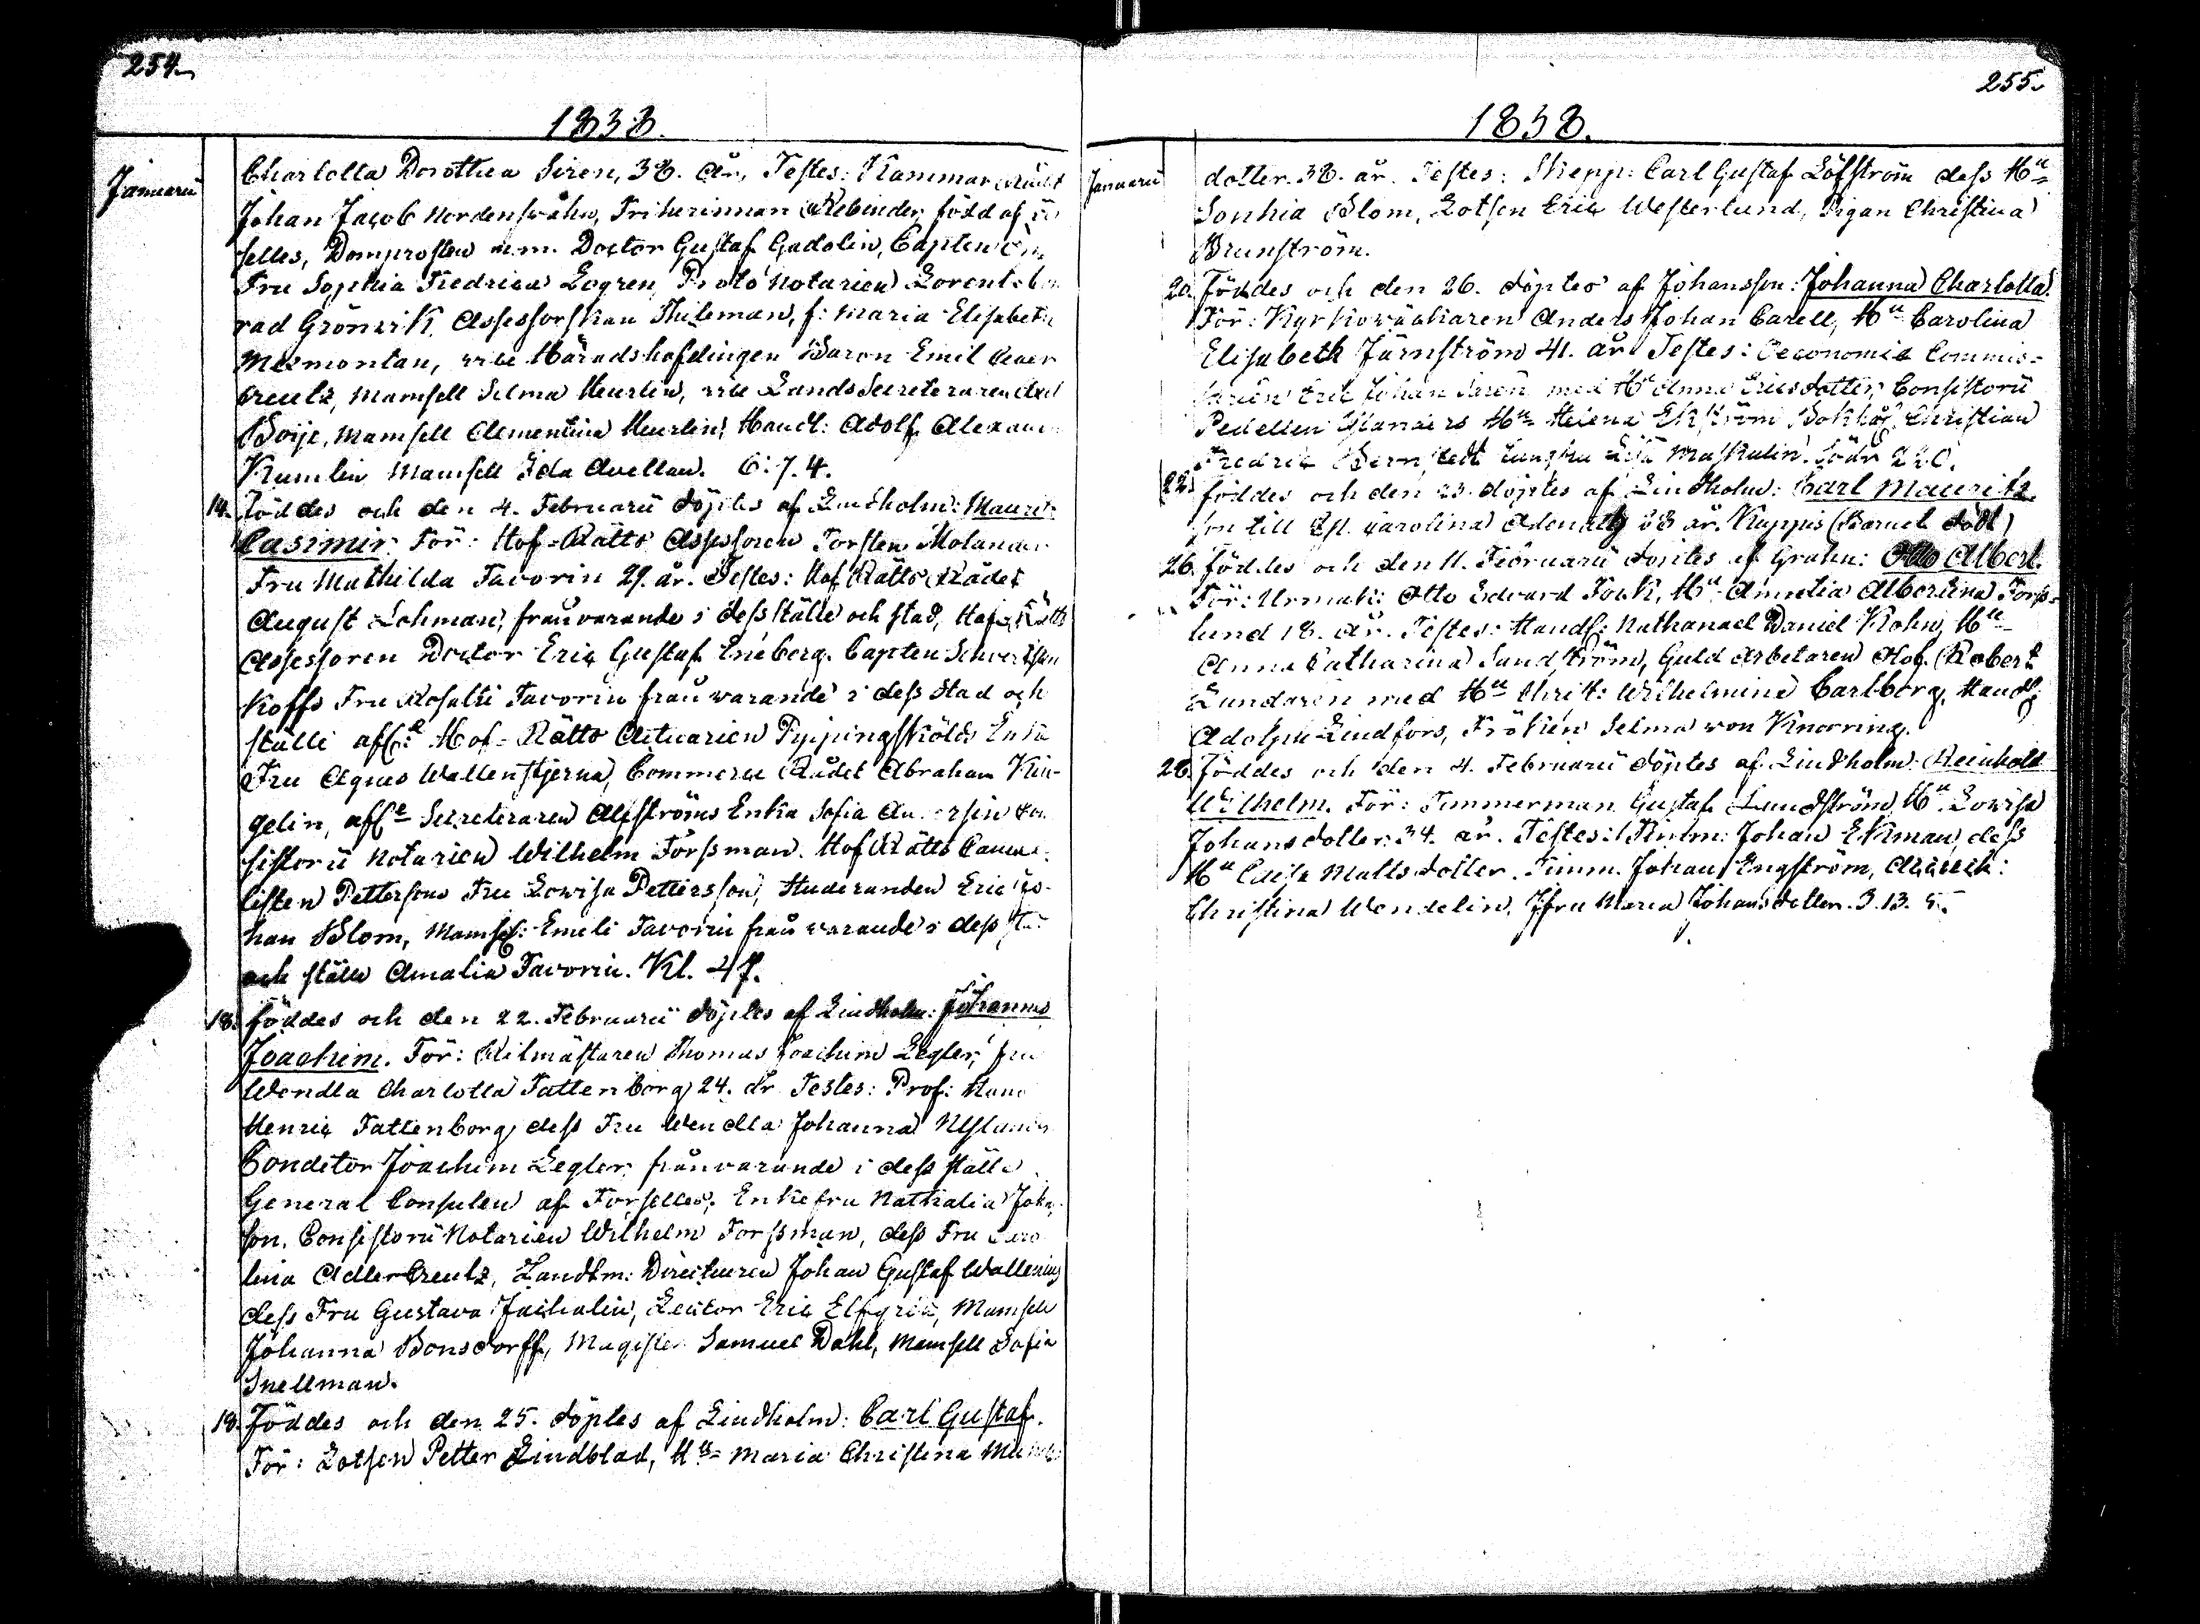 254.
1838.
Januarii
Charlotta Dorothea Siren, 38. år, Testes: Kammar Rådet
Johan Jacob Nordenswahn, Friherinnan Rebinder född af
selles, Domprosten m.m. Doctor Gustaf Gadolin, Capten
Fru Sophia Fredrica Logren, Proto Notarien Lorents
rad Grönwik, Assessorskan Thileman, f: Maria Elisabeth
Mesmontan, vice Häradshöfdingen Baron Emil
Creutz, Mamsell Selma Heurlin, vice Lands Secreteraren Axel
Boije, Mamsell Clementina Heurlin, Handl: Adolf Alexan
Kumlin Mamsell Ida Avellan. 6:7.4.
14. Föddes och den 4. Februarii döptes af Lindholm: Maurits
Casimir. För: Hof-Rätts Assessoren Torsten Molander
Fru Mathilda Favorin 29. år. Testes: Hof Rätts Rådet
August Lohman, frånvarande i dess ställe och stad, Hof Rätts
Assessoren Doctor Eric Gustaf Eneberg. Capten
koffs Fru Rosalie Favorin frånvarande i dess stad och
ställe Hof-Rätts Actuarien Pippingskölds Enka
Fru Agnes Wallenstjerna, Commerce Rådet Abraham Kin-
gelin, Secreteraren Alfströms Enka Sofia Con
sistorii Notarien Wilhelm Forssman. Hof Rätts Cance
listen Pettersons Fru Lowisa Pettersson, Studeranden Eric Jo-
han Blom, Mamsell: Emeli Favorin frånvarande i dess sta
och ställe Amalia Favorin. Kl. 47.
18. föddes och den 22. Februarii döptes af Lindholm: Johannes
Joachim. För: Ritmästaren Thomas Joachim Legler, fru
Wendla Charlotta Fattenborg 24. år Testes: Prof: Hans
Henric Fattenborg, dess Fru Wendla Johanna
Conditor Joachim Legler frånvarande i dess ställe
General Consulen af Forselles, Enkefru Nathalia Johan
son. Consistorii Notarien Wilhelm Forssman, dess Fru Caro
lina Adlercreutz, Landtm: Directeuren Johan Gustaf Wallenius
dess Fru Gustava Lector Eric Elfgren, Mamsell
Johanna Bonsdorff, Magister Samuel Dahl, Mamsell Sofia
Snellman.
18. Föddes och den 25. döptes af Lindholm: Carl Gustaf.
För: Lotsen Petter Lindblad, Hu Maria Christina
255.
1838.
Januarii
dotter. 38. år. Testes: Skepp: Carl Gustaf Löfström dess Hu
Sophia Blom, Lotsen Eric Westerlund, Pigan Christina
Brunström.
20. Föddes och den 26. döptes af Johansson: Johanna Charlotta.
För: Kyrkowäktaren Anders Johan Carell, Hu Carolina
Elisabeth Järnström 41. år. Testes: Oeconomie Commis-
sarien Eric Johan med Hu Anna Ericsdotter, Consistorii
Pedellen Hu Helena Ekström Bokhål Christian
Fredric Bernstedt
22. föddes och den 23. döptes af Lindholm: Carl Mauritz.
son till Carolina 28 år. Kuppis (Barnet dödt)
26. föddes och den 11. Februarii döptes af Grahn: Otto Albert.
För: Urmak: Otto Edvard Fock, Hu Amalia Albertina Fors-
lund 18. år. Testes: Handl: Nathanael Daniel Kohn, Hu
Anna Catharina Sundström, Guld Arbetaren Robert
Lundgren med Hu Christ: Wilhelmina Carlborg, Handl
Adolph Lindfors, Fröken Selma von Knorring.
28. Föddes och den 4. Februarii döptes af Lindholm: Reinhold
Wilhelm. För: Timmerman Gustaf Lundström, Hu Lowisa
Johansdotter. 34. år. Testes: Johan Ekman, dess
Hu Cajsa Mattsdotter. Timm. Johan Engström,
Christina Wendelin. Jfru Maria Johansdotter. 3.13.